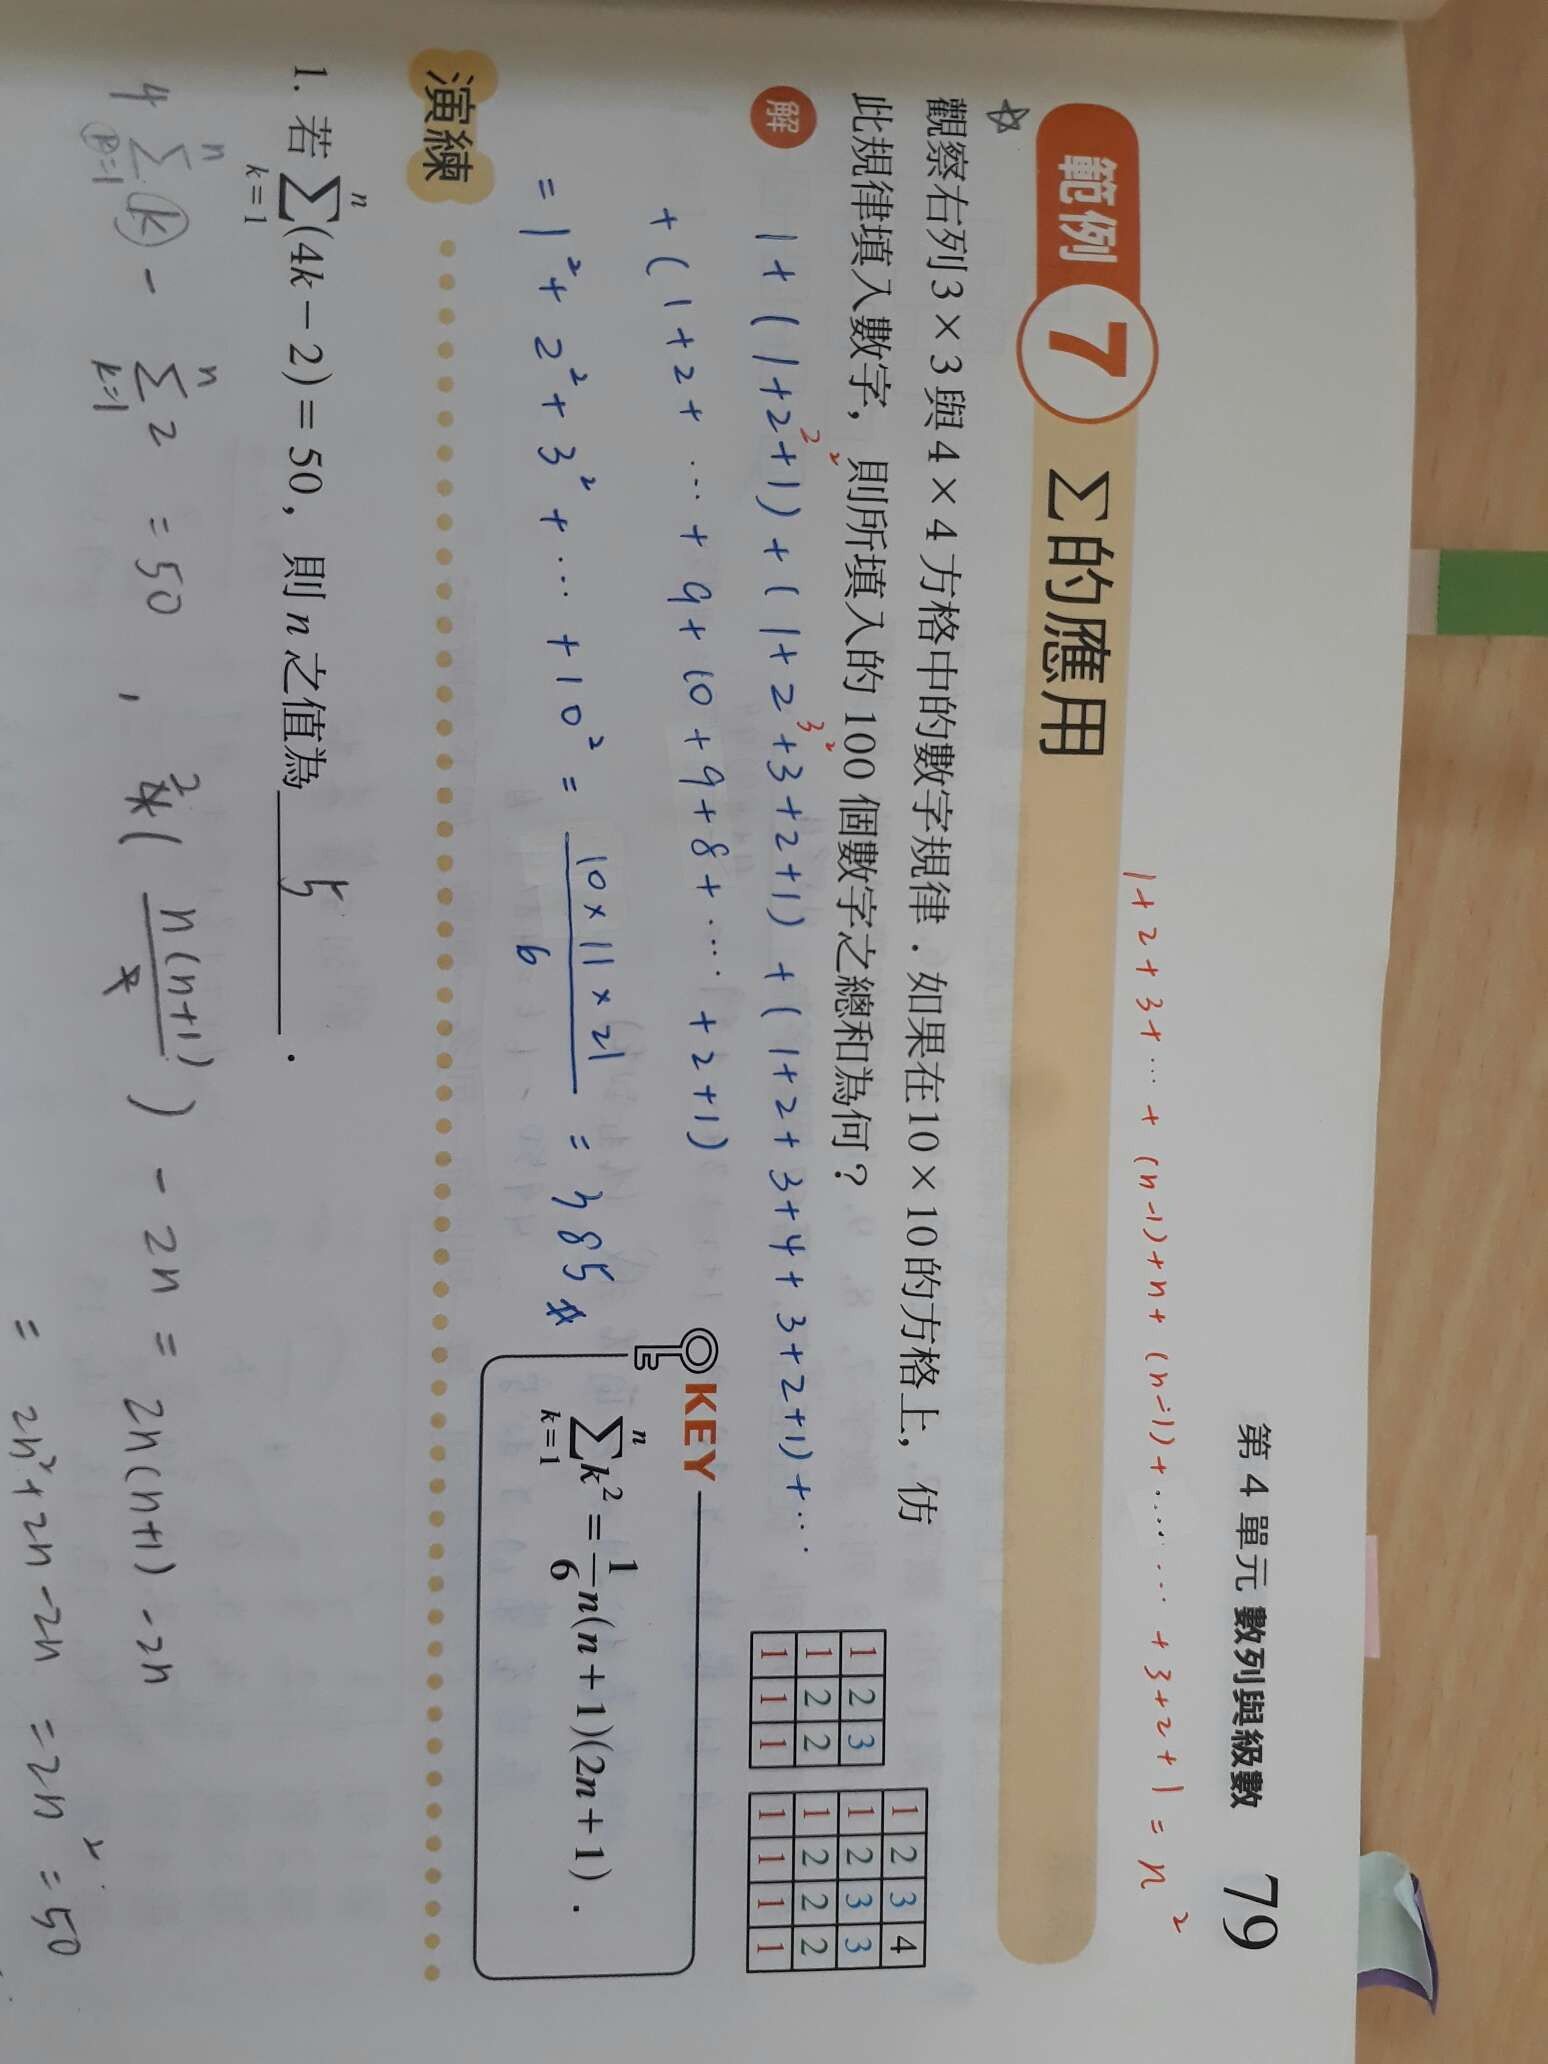 第 4 單元 數列與級數 79
1+2+3+…+(n-1)+n+(n-1)+……+3+2+1=n²
範例 7 Σ的應用
☆
觀察右列3×3與4×4方格中的數字規律．如果在10×10的方格上，仿
此規律填入數字，則所填入的100個數字之總和為何？
1 2 3
1 2 2
1 1 1
1 2 3 4
1 2 3 3
1 2 2 2
1 1 1 1
解
1+(1+2+1)+(1+2+3+2+1)+(1+2+3+4+3+2+1)+…
2² 3²
+(1+2+…+9+10+9+8+…+2+1)
=1²+2²+3²+…+10²=\frac{10×11×21}{6}=385
KEY
\sum_{k=1}^{n}k²=\frac{1}{6}n(n+1)(2n+1)．
演練
1. 若\sum_{k=1}^{n}(4k-2)=50，則n之值為 5 ．
4\sum_{k=1}^{n}k-\sum_{k=1}^{n}2=50，2(\frac{n(n+1)}{})-2n=2n(n+1)-2n
=2n²+2n-2n=2n²=50